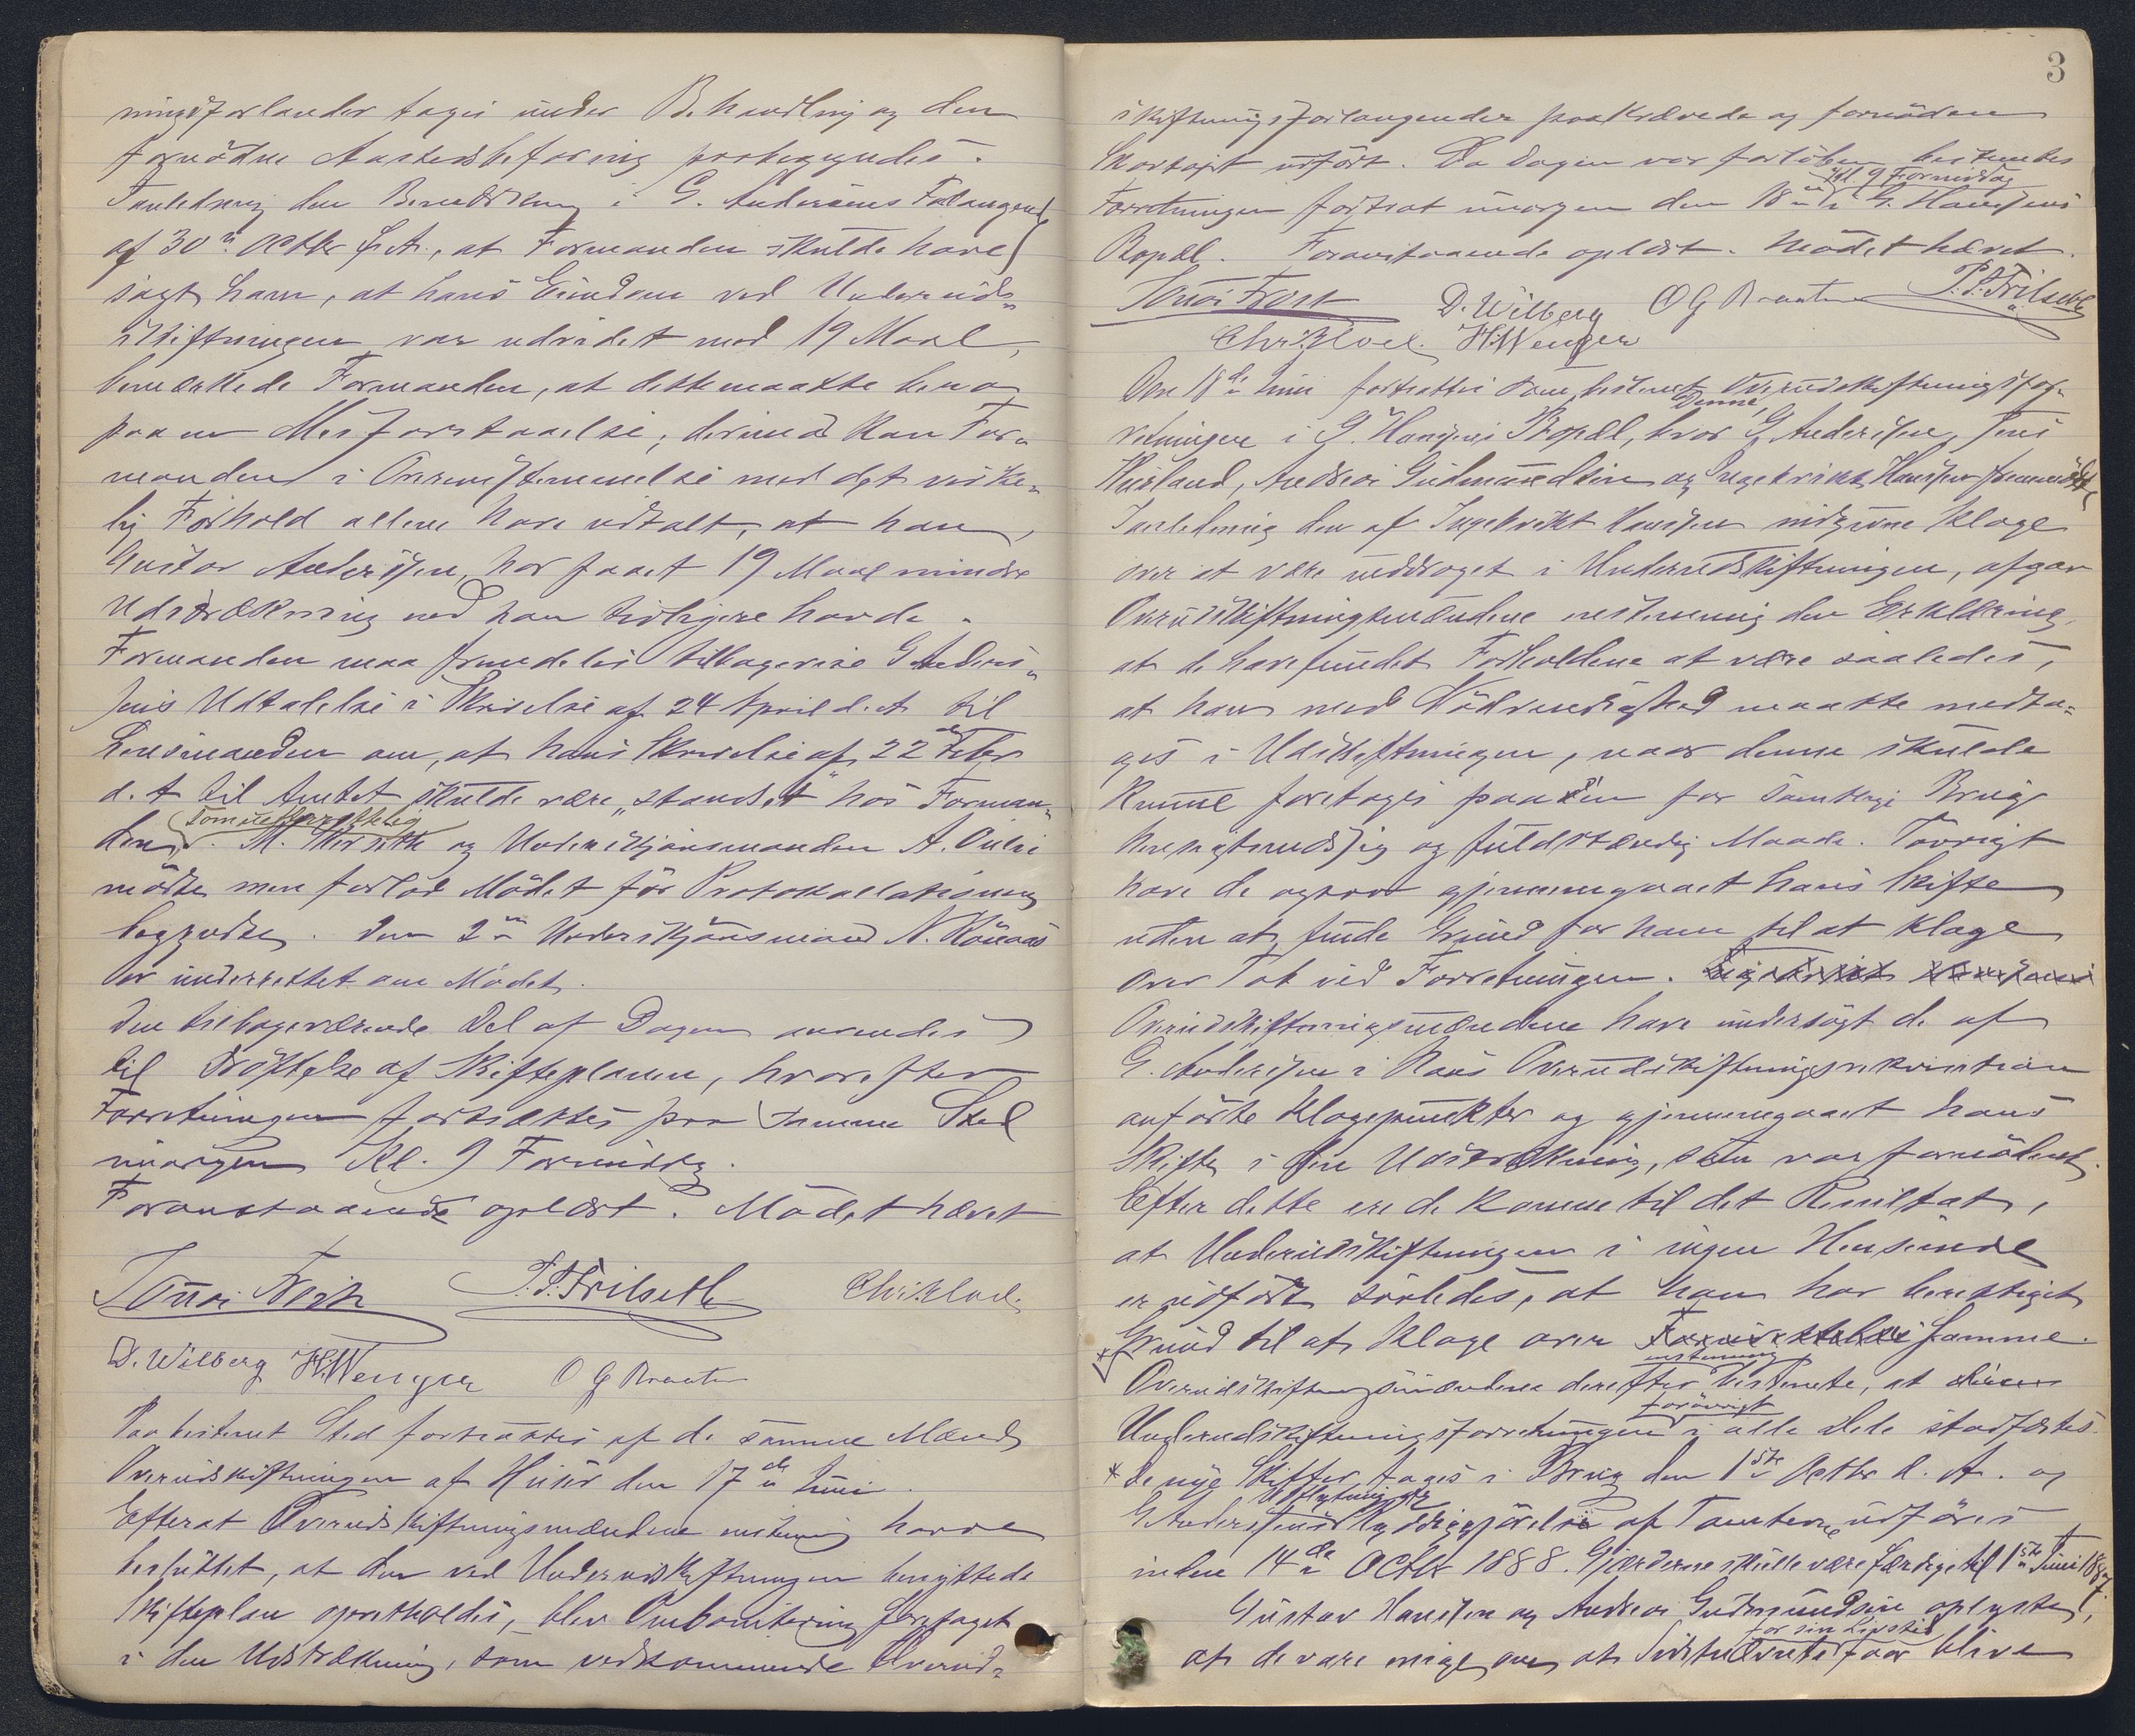 ningsforlander tages under Behandling og den
fornødne Aastedsbefaring paabegyndes.
I anledning den Bemærkning i G. Andersens Forlangende
af 30te Octbr f. A., at Formanden skulde have
sagt ham, at hans Eiendom ved Underuds-
skiftningen var udvidet med 19 Maal,
bemærkede Formanden, at dette maatte bero
paa en Misforstaaelse; derimod kan For-
manden i Overensstemmelse med det virke-
lig Forhold allene have udtalt, at han,
Gustav Andersen, har faaet 19 Maal mindre
Udstrækning end han tidligere havde.
Formanden maa fremdeles tilbagevise G Anders-
sens Udtalelse i Skrivelse af 24 April d. A til
Lensmanden om, at hans Skrivelse af 22de Febr
d. A til Amtet skulde være "standset" hos Forman-
den. M. og Underskjønsmanden A.
mødte men forlod Mødet før Protokollationen
begyndte. Den 2den Underskjønsmand N.
er underrettet om Mødet.
Den tilbageværende Del af Dagen anvendes
til Drøftelse af Skifteplanen, hvorefter
Forretningen fortsættes paa samme Sted
imorgen Kl. 9 Formiddag.
Foranstaaende oplæst. Mødet hævet
P. P. Frilseth Chr. Kloed.
D. Wilberg H. Wenger O G Braaten
Paa bestemt Sted fortsattes af de samme Mænd
Overudskiftningen af Huser den 17de Juni.
Efterat Overudskiftningsmændene enstemmig havde
besluttet, at den ved Underudskiftningen benyttede
Skifteplan opretholdes, blev Ombonitering foretaget
i den Udstrækning, som vedkommende Overud-
3
skiftningsforlangender paakrævede og fornøden
Skovtaxt udført. Da Dagen var forløben bestemtes
Kl. 9 Formiddag
Forretningen fortsat imorgen den 18de i G. Hansens
Bopæl. Foranstaaende oplæst. Mødet hævet.
D. Wilberg O G Braaten P. P. Frilseth
Chr. Kloed. H. Wenger
Den 18de Juni fortsattes som bestemt Overudskiftningsfor-
denne
retningen i G. Hansens Bopæl, hvor G. Andersen, Jens
Huusland, Andreas Gudmundsen og Ingebrikt Hansen fremmødte
I anledning den af Ingebrikt Hansen indgivne Klage
over at være inddraget i Underudskiftningen, afgav
Overudskiftningsmændene enstemmig den Erklæring,
at de have fundet Forholdene at være saaledes,
at han med Nødvendighed maatte medta-
ges i Udskiftningen, naar denne skulde
kunne foretages paa en for samtlige Brug
hensigtsmæssig og fuldstændig Maade. Iøvrigt
have de ogsaa gjennemgaaet hans Skifte
uden at finde Grund for ham til at klage
over Tab ved Forretningen.
Overudskiftningsmændene have undersøgt de af
G. Andersen i hans Overudskiftningsrekvisition
anførte Klagepunkter og gjennemgaaet hans
Skifte i den Udstrækning, som var fornødent.
Efter dette ere de komne til det Resultat,
at Underudskiftningen i ingen Henseende
er udført saaledes, at han har berettiget
Grund til at klage over samme.
enstemmig
Overudskiftningsmændene derefter bestemte, at
forøvrigt
Underudskiftningsforretningen i alle Dele stadfæstes.
* De nye Skifter tages i Brug den 1ste Octbr d. A. og
Udflytning og
G Anderssens Ryddiggjørelse af Tomterne udføres
inden 14de Octbr 1888. Gjærderne skulle være færdige til 1ste Juni 1887.
Gustav Hansen og Andreas Gudmundsen oplyste,
for sin Livstid
at de vare enige om, at Sidstnævnte faar blive